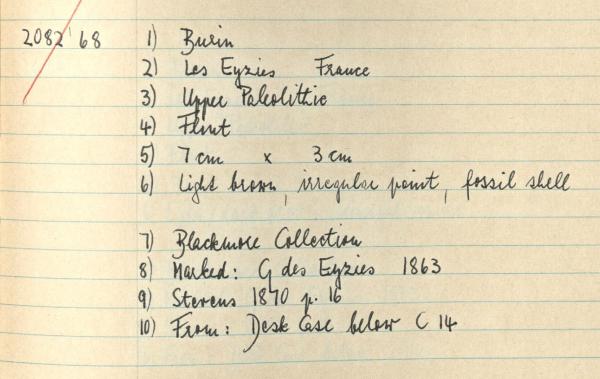 2082'68 1) Burin
2) Les Eyzies France
3) Upper Paleolithic
4) Flint
5) 7cm x 3cm
6) Light brown, irregular point, fossil shell
7) Blackmore Collection
8) Marked: G des Eyzies 1863
9) Stevens 1870 p. 16
10) From: Desk Case below C 14